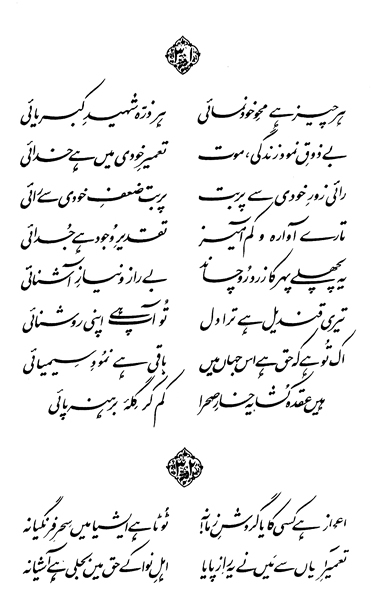 ۳۱
ہر چیز ہے محوِ خود نمائی ہر ذرّہ شہیدِ کبریائی
بے ذوقِ نمود زندگی، موت تعمیرِ خودی میں ہے خدائی
رائی زورِ خودی سے پربت پربت ضعفِ خودی سے رائی
تارے آوارہ و کم آمیز تقدیرِ وجود ہے جدائی
یہ پچھلے پہر کا زرد رُو چاند بے راز و نیازِ آشنائی
تیری قندیل ہے ترا دل تُو آپ ہے اپنی روشنائی
اک تُو ہے کہ حق ہے اس جہاں میں باقی ہے نمودِ سیمیائی
ہیں عقدہ کُشا یہ خارِ صحرا کم کر گِلۂ برہنہ پائی
۳۲
اعجاز ہے کسی کا یا گردشِ زمانہ! ٹوٹا ہے ایشیا میں سحرِ فرنگیانہ
تعمیرِ آشیاں سے میں نے یہ راز پایا اہلِ نوا کے حق میں بجلی ہے آشیانہ